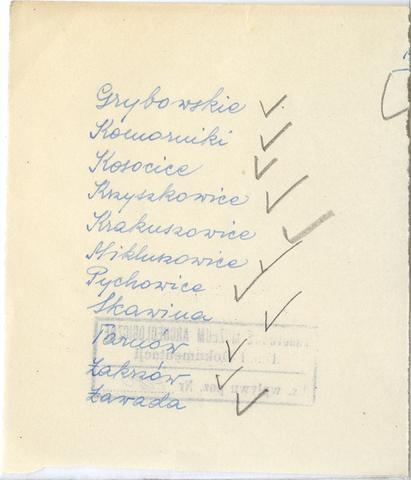 Grybowskie
Komorniki
Kosocice
Krzyszkowice
Krakuszowice
Mikluszowice
Pychowice
Skawina
Tarnów
Zakrzów
Zawada